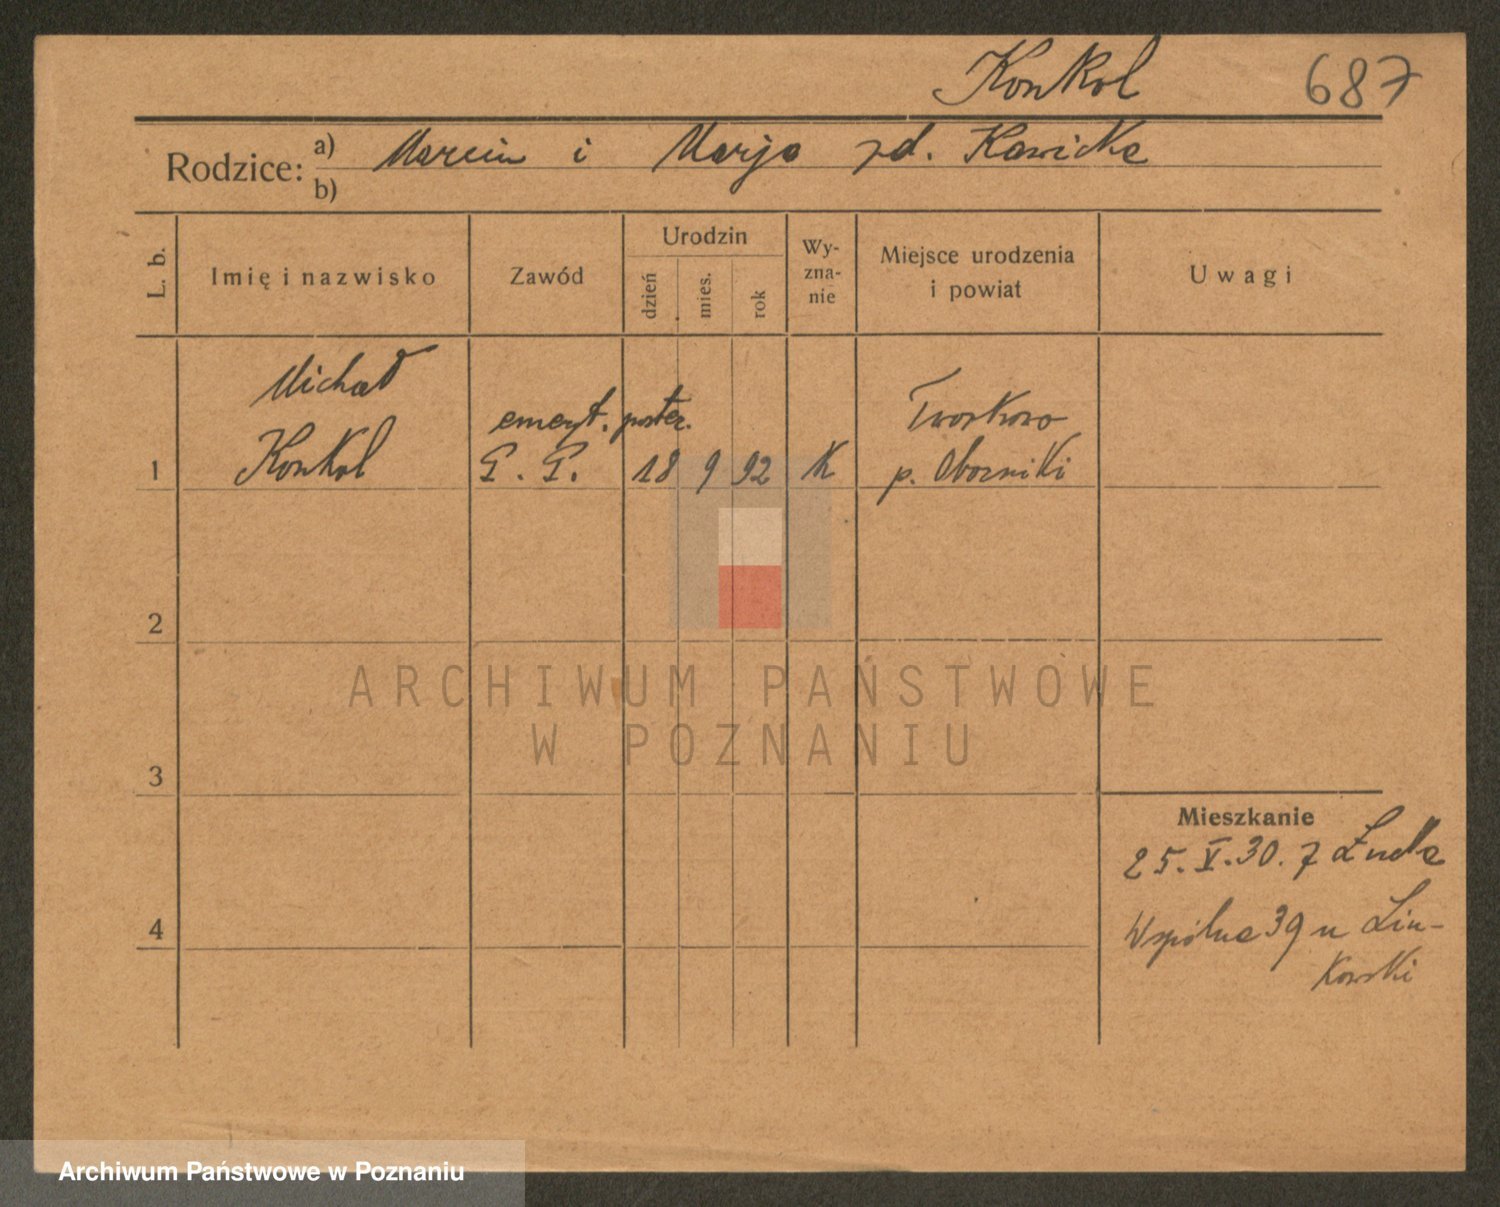 Konkol 687
Rodzice: a) Marcin i Marja zd. Kawicka
b)
L. b.
Imię i nazwisko
Zawód
Urodzin
dzień
mies.
rok
Wy-
zna-
nie
Miejsce urodzenia
i powiat
Uwagi
Michał emeryt. poster. Tworkowo
1 Konkol P. P. 18 9 92 K p. Oborniki
2
ARCHIWUM PAŃSTWOWE
W POZNANIU
3
Mieszkanie
25. V. 30. z
4 Wspólna 39 u Lin-
kowski
Archiwum Państwowe w Poznaniu